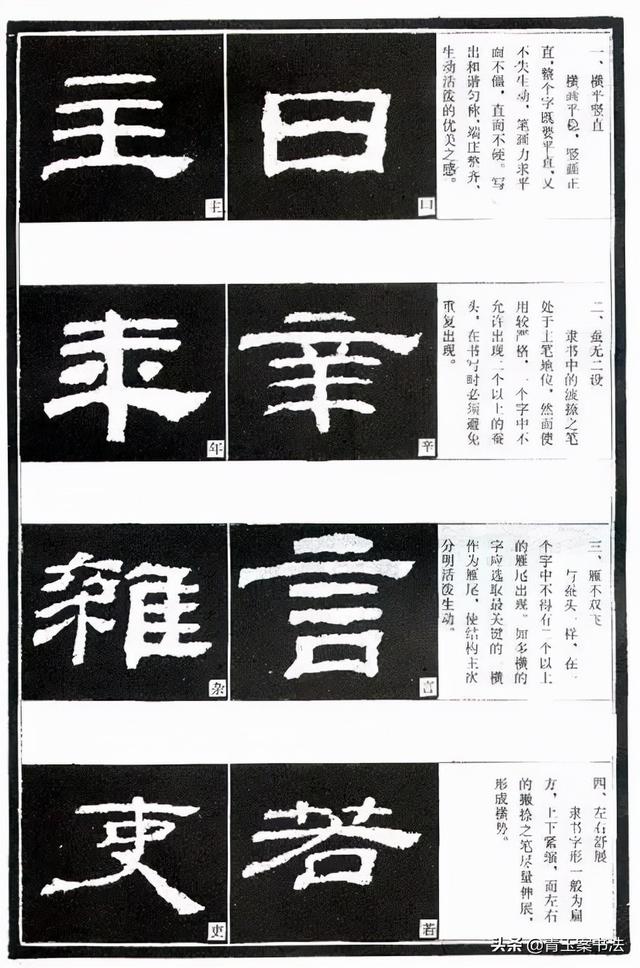 一、横平竖直
横画平,竖画正
直,整个字既要平直,又
不失生动,笔画力求平
而不僵,直而不硬。写
出和谐匀称、端庄整齐、
生动活泼的优美之感。
曰
曰
主
主
二、蚕无二设
隶书中的波捺之笔
处于主笔地位,然而使
用较严格,一个字中不
允许出现二个以上的蚕
头,在书写时必须避免
重复出现。
辛
辛
年
年
三、雁不双飞
与蚕头一样,在一
个字中不得有二个以上
的雁尾出现。如多横的
字应选取最关键的一横
作为雁尾,使结构主次
分明活泼生动。
言
言
雜
杂
四、左右舒展
隶书字形一般为扁
方,上下紧缩,而左右
的撇捺之笔尽量伸展,
形成横势。
若
若
吏
吏
头条 @青玉案书法